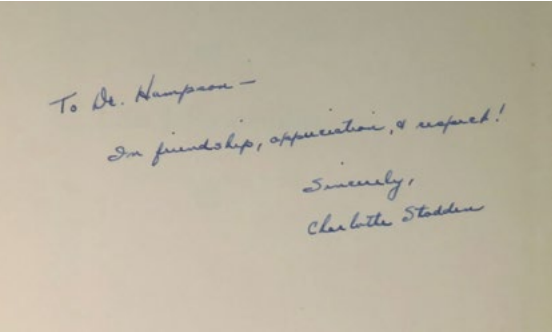 To Dr. Hampson —
In friendship, appreciation, & respect!
Sincerely,
Charlotte Stadden